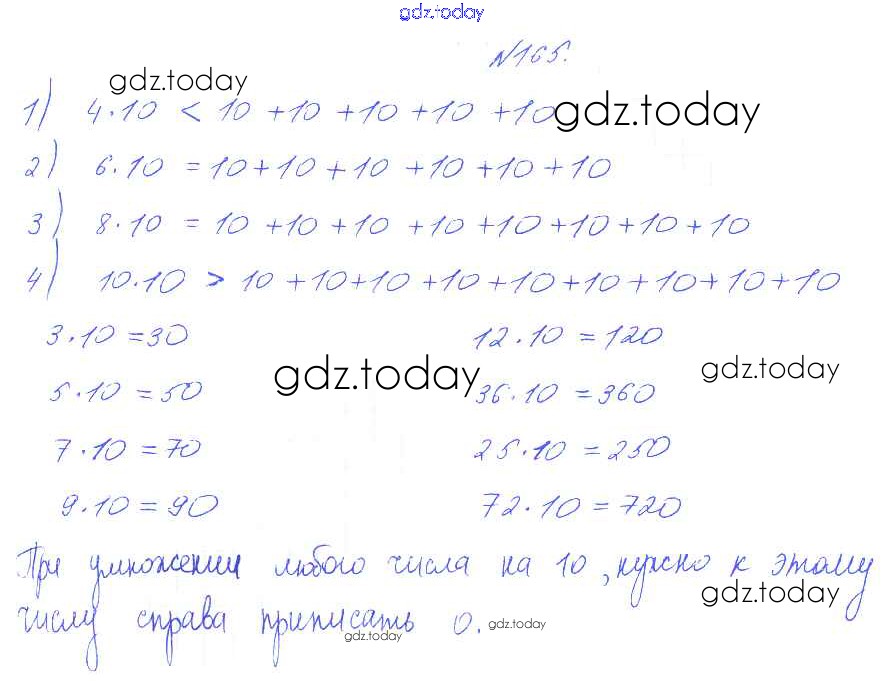 gdz.today
№165.
gdz.today
1) 4·10 < 10 +10 +10 +10 +10
gdz.today
2) 6·10 = 10+10+10 +10+10+10
3) 8·10 = 10 +10+10 +10 +10+10+10+10
4) 10·10 > 10 +10+10 +10+10+10+10+10+10
3·10 =30 12·10 =120
gdz.today
gdz.today
5·10 =50 36·10 =360
7·10 =70 25·10 =250
9·10 = 90 72·10 =720
При умножении любого числа на 10, нужно к этому
gdz.today
числу справа приписать 0.
gdz.today gdz.today